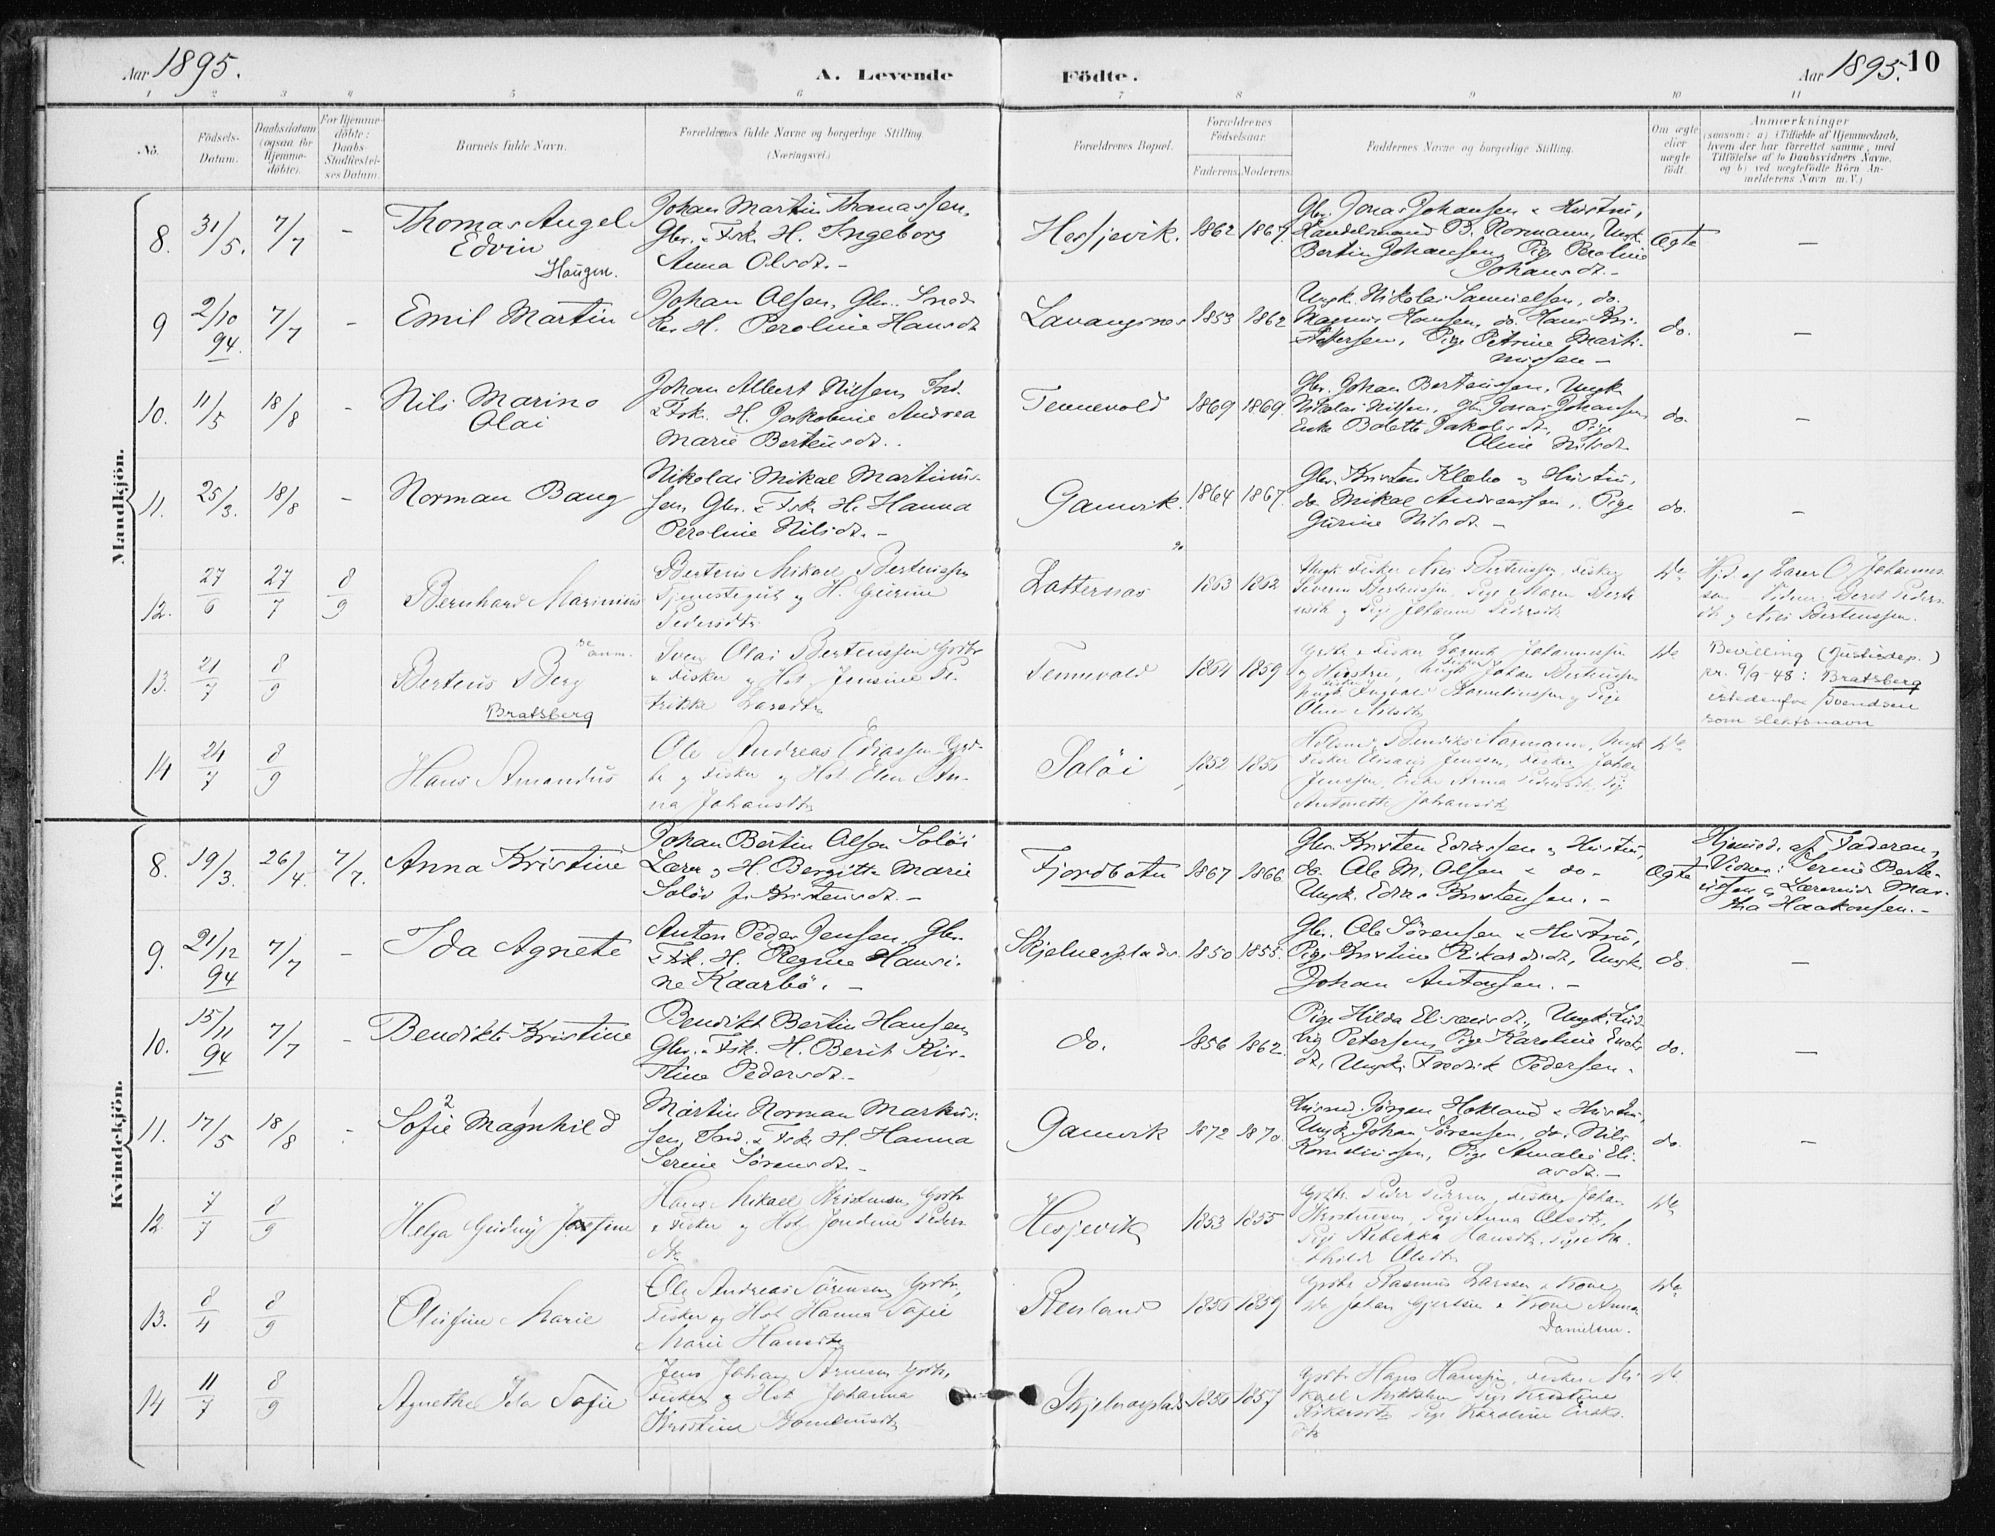 Aar 1895.
A. Levende
Födte.
Aar 1895.
10
1 2 3 4 5 6 7 8 9 10 11
No.
Födsels-
Datum.
Daabsdatum
(ogsaa for
Hjemme-
döbte).
For Hjemme-
döbte:
Daabs-
Stadfæstel-
ses Datum.
Barnets fulde Navn.
Forældrenes fulde Navne og borgerlige Stilling.
(Næringsvei.)
Forældrenes Bopæl.
Forældrenes
Födselsaar.
Faderens.
Moderens.
Faddernes Navne og borgerlige Stilling.
Om ægte
eller
uægte
födt.
Anmærkninger
(saasom: a) i Tilfælde af Hjemmedaab,
hvem der har forrettet samme, med
Tilföielse af to Daabsvidners Navne,
og b) ved uægtefödte Börn An-
melderens Navn m. V.)
Mandkjön.
8. 31/5. 7/7 - Thomas Angel
Edvin
Haugen.
Johan Martin Thomassen,
Gbr. & Fsk. H. Ingeborg
Anna Olsdt. -
Hesjevik. 1862 1867.
Gbr. Jonas Johansen & Hustru,
Handelsmand B. Normann, Ungk.
Bertin Johansen, Pige Peroline
Johansdt. -
Ægte -
9 2/10 94. 7/7 - Emil Martin
Johan Olsen, Gbr. Sned-
ker H. Peroline Hansdt
Lavangsnes 1853 1862
Ungk. Nikolai Samuelsen, do.
Magnus Hansen, do. Hans Kri-
stoffersen, Pige Petrine Marti-
nussen -
do. -
10. 11/5 18/8 - Nils Marino
Olai
Johan Albert Nilsen, Ind.
& Fsk. H. Jakobine Andrea
Marie Bertensdt. .
Tennevold 1869 1869.
Gbr. Johan Bertensen, Ungk.
Nikolai Nilsen, Gbr. Jonas Johansen
Enke Bolette Jakobsdt, Pige
Oline Nilsdt.
do. -
11. 25/3. 18/8 - Norman Bang
Nikolai Mikal Martinus-
sen, Gbr. & Fsk. H. Hanna
Peroline Nilsdt. -
Gamvik. 1864 1867.
Gbr. Kristen Klæbo & Hustru,
do Mikal Andreassen, Pige
Gurine Nilsdt. -
do. -
12. 27/6 27/7 8/9 Bernhard Marinius
Bertens Mikael Bertenssen
Tjenestegut og H. Gurine
Pedersdtr
Lotternes 1863 1862
Ungk. Fisker Nils Bertenssen, Fisker
Severin Bertenssen, Pige Maren Bert
og Pige Johanna Pedersdtr
Hjd. af Lærer O. Johannes-
sen Vidner: Beret Peders-
dtr og Nils Bertenssen.
13. 21/7 8/9 Berteus Berg
se anm.
Bratsberg
Sven Olai Bertenssen Gbr
& Fisker og Hst. Jensine Pe-
trikka Larsdtr
Tennevold 1864 1859
Fisker Johannessen
og Hustru, Ungk. Johan Bertenssen
Ungk. Ingvald Kornelinssen og Pige
Oline Nilsdtr
Bevilling (Justisdep.)
pr. 9/9-48: Bratsberg
istedenfor Svendsen
som slektsnavn
14 24/7 8/9 Hans Amandus
Ole Andreas Eliassen Grd-
br og Fisker og Hst. Elen An-
na Johansdtr
Soløi 1852 1855
Ungk.
Fisker Jenssen, Fisker Johan
Jenssen, Enke Anna Pedersdt, Pige
Antonette Johansdt
Kvindekjön.
8. 19/3. 26/4. 7/7. Anna Kristine
Johan Bertin Olsen Soløi
Lærer og H. Bergitte Marie
Soløi f. Kristensdt. -
Fjordbotn 1867 1866.
Gbr. Kristen Edissen og Hustru,
do. Ole M. Olsen & do -
Ungk. Edias Kristensen. -
Ægte
Hjemmed. af Faderen,
Vidner: Serine Berte-
ussen & Lærerinde Mar-
tha Haakonsen. -
9. 21/12 94 7/7 - Ida Agnete
Anton Peder Jensen, Gbr.
& Fsk. H. Regine Hansi-
ne Kaarbø. -
Skjelnesplads. 1850 1855.
Gbr. Ole Sørensen & Hustru,
Pige Kristine Rikardsdt, Ungk.
Johan Antonsen. -
do. -
10. 15/11 94 7/7 - Bendikte Kristine
Bendikt Bertin Hansen,
Gbr. & Fsk. H. Berit Kir-
stine Pedersdt. -
do. 1856 1862.
Pige Hilda Eliseusdt., Ungk. Lud-
vig Petersen, Pige Karoline Enoks
dt, Ungk. Fredrik Pedersen.
do. -
11. 17/5 18/8 - Sofie 2 Magnhild 1
Martin Norman Markus-
sen, Ind. & Fsk. H. Hanna
Serine Sørensdt. -
Gamvik 1872 1870.
Husmd. Jørgen Hokland & Hustru,
Ungk. Johan Sørensen, do. Nils
Korneliussen, Pige Amalie Eli-
asdt. -
do. -
12 7/7 8/9 Helga Gudny Josefine
Hans Mikael Kristensen, Gbr
& Fisker og Hst. Jondine Peders
dtr
Hesjevik 1853 1855
Peder Fisker Johan
Kristensen, Pige Anna Olsdtr,
Pige Rebekka Hansdtr, Pige Ma-
thilde Olsdtr
13. 8/4 8/9 Olufine Marie
Ole Andreas Sørensen Gbr,
Fisker og Hst. Hanna Sofie
Marie Hansdtr
Rensland 1855 1859
Rasmus Larssen & Kone,
do Johan Gjertsen & Kone Anna
Danielsen.
14 11/7 8/9 Agnethe Ida Sofie
Jens Johan Arnesen Gbr,
Fisker og Hst. Johanna
Kristine
Skjelnesplads 1856 1857
Hans Hanssen, Fisker Mi-
kael Pige Kristine
Rikardsdtr Pige Karoline Enoks-
dtr